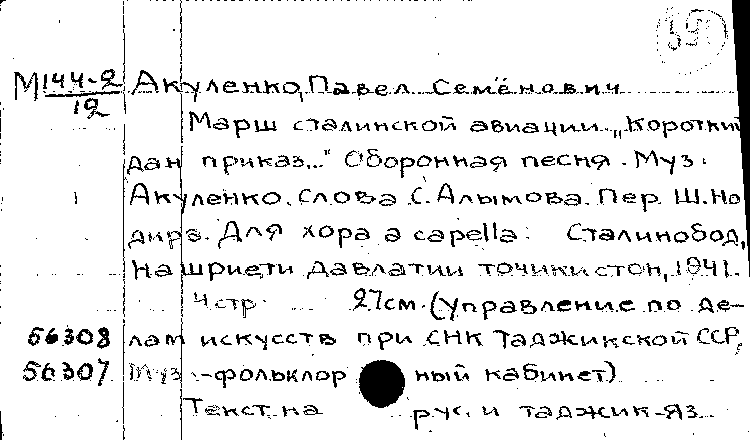 39.
М144-2 Акуленко, Павел Семёнович
12
Марш сталинской авиации. „Короткий
дан приказ..." Оборонная песня. Муз.
Акуленко. Слова С. Алымова. Пер. Ш. Но
дира. Для хора a capella: Сталинобод,
Нашриети давлатии точикистон, 1941.
4 стр. 27см. (Управление по де-
56308 лам искусств при СНК Таджикской ССР,
56307 Муз.-фольклорный кабинет)
Текст на рус. и таджик-яз.